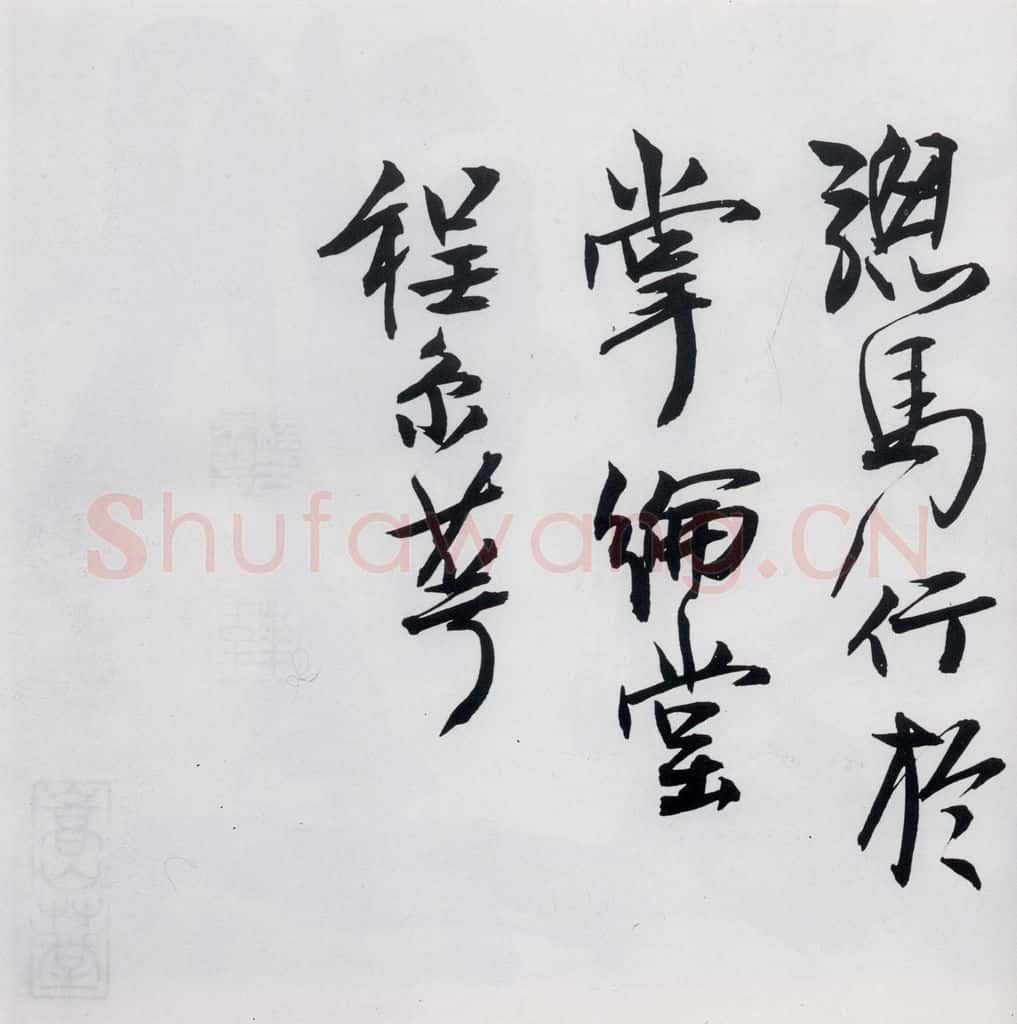 驄馬行於
掌綸堂
程京萼
Shufawang.CN